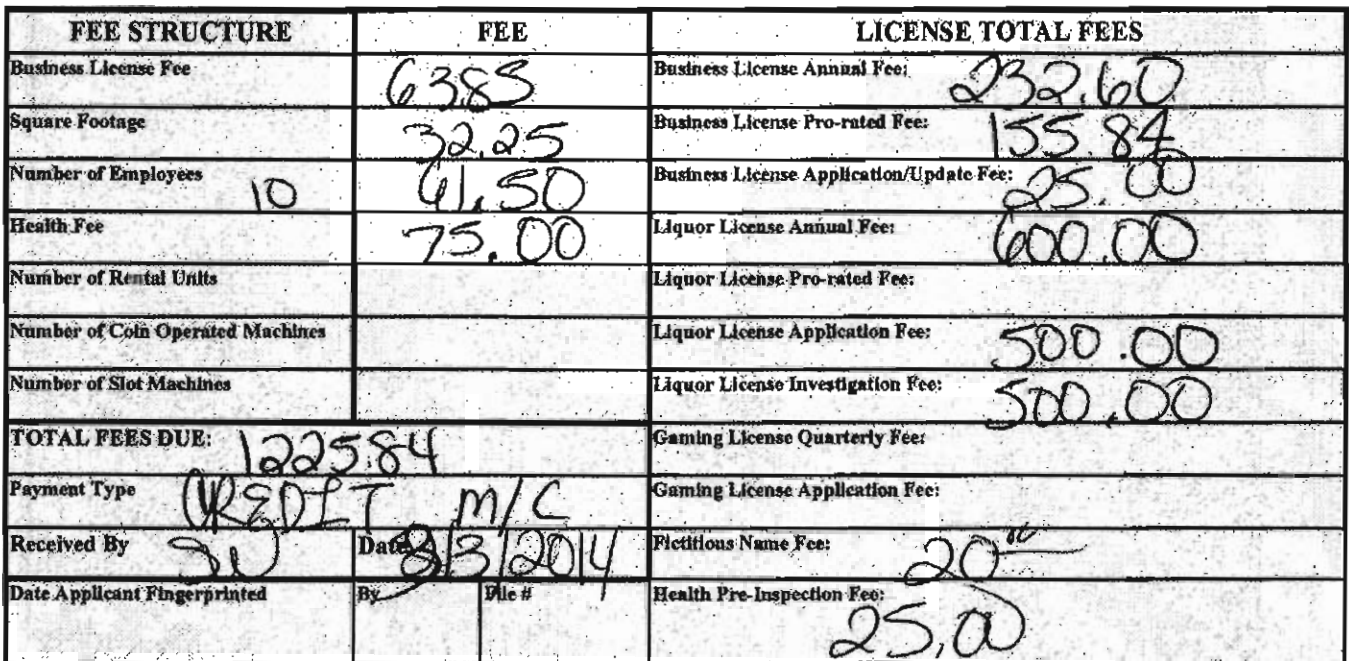 FEE STRUCTURE FEE LICENSE TOTAL FEES
Business License Fee 63.85 Business License Annual Fee: 232.60
Square Footage 32.25 Business License Pro-rated Fee: 155.84
Number of Employees 10 61.50 Business License Application/Update Fee: 25.00
Health Fee 75.00 Liquor License Annual Fee: 600.00
Number of Rental Units Liquor License Pro-rated Fee:
Number of Coin Operated Machines Liquor License Application Fee: 500.00
Number of Slot Machines Liquor License Investigation Fee: 500.00
TOTAL FEES DUE: 1225.84 Gaming License Quarterly Fee:
Payment Type CREDIT M/C Gaming License Application Fee:
Received By Date 8/3/2014 Fictitious Name Fee: 20 00
Date Applicant Fingerprinted By File # Health Pre-Inspection Fee: 25.00